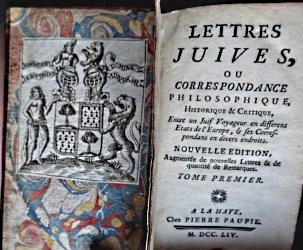 LETTRES
JUIVES,
OU
CORRESPONDANCE
PHILOSOPHIQUE,
HISTORIQUE & CRITIQUE,
Entre un Juif Voyageur en differens
Etats de l'Europe, & ses Corres-
pondans en divers endroits.
NOUVELLE EDITION,
Augmentée de nouvelles Lettres & de
quantité de Remarques.
TOME PREMIER.
A LA HAYE,
Chez PIERRE PAUPIE.
M. DCC. LIV.